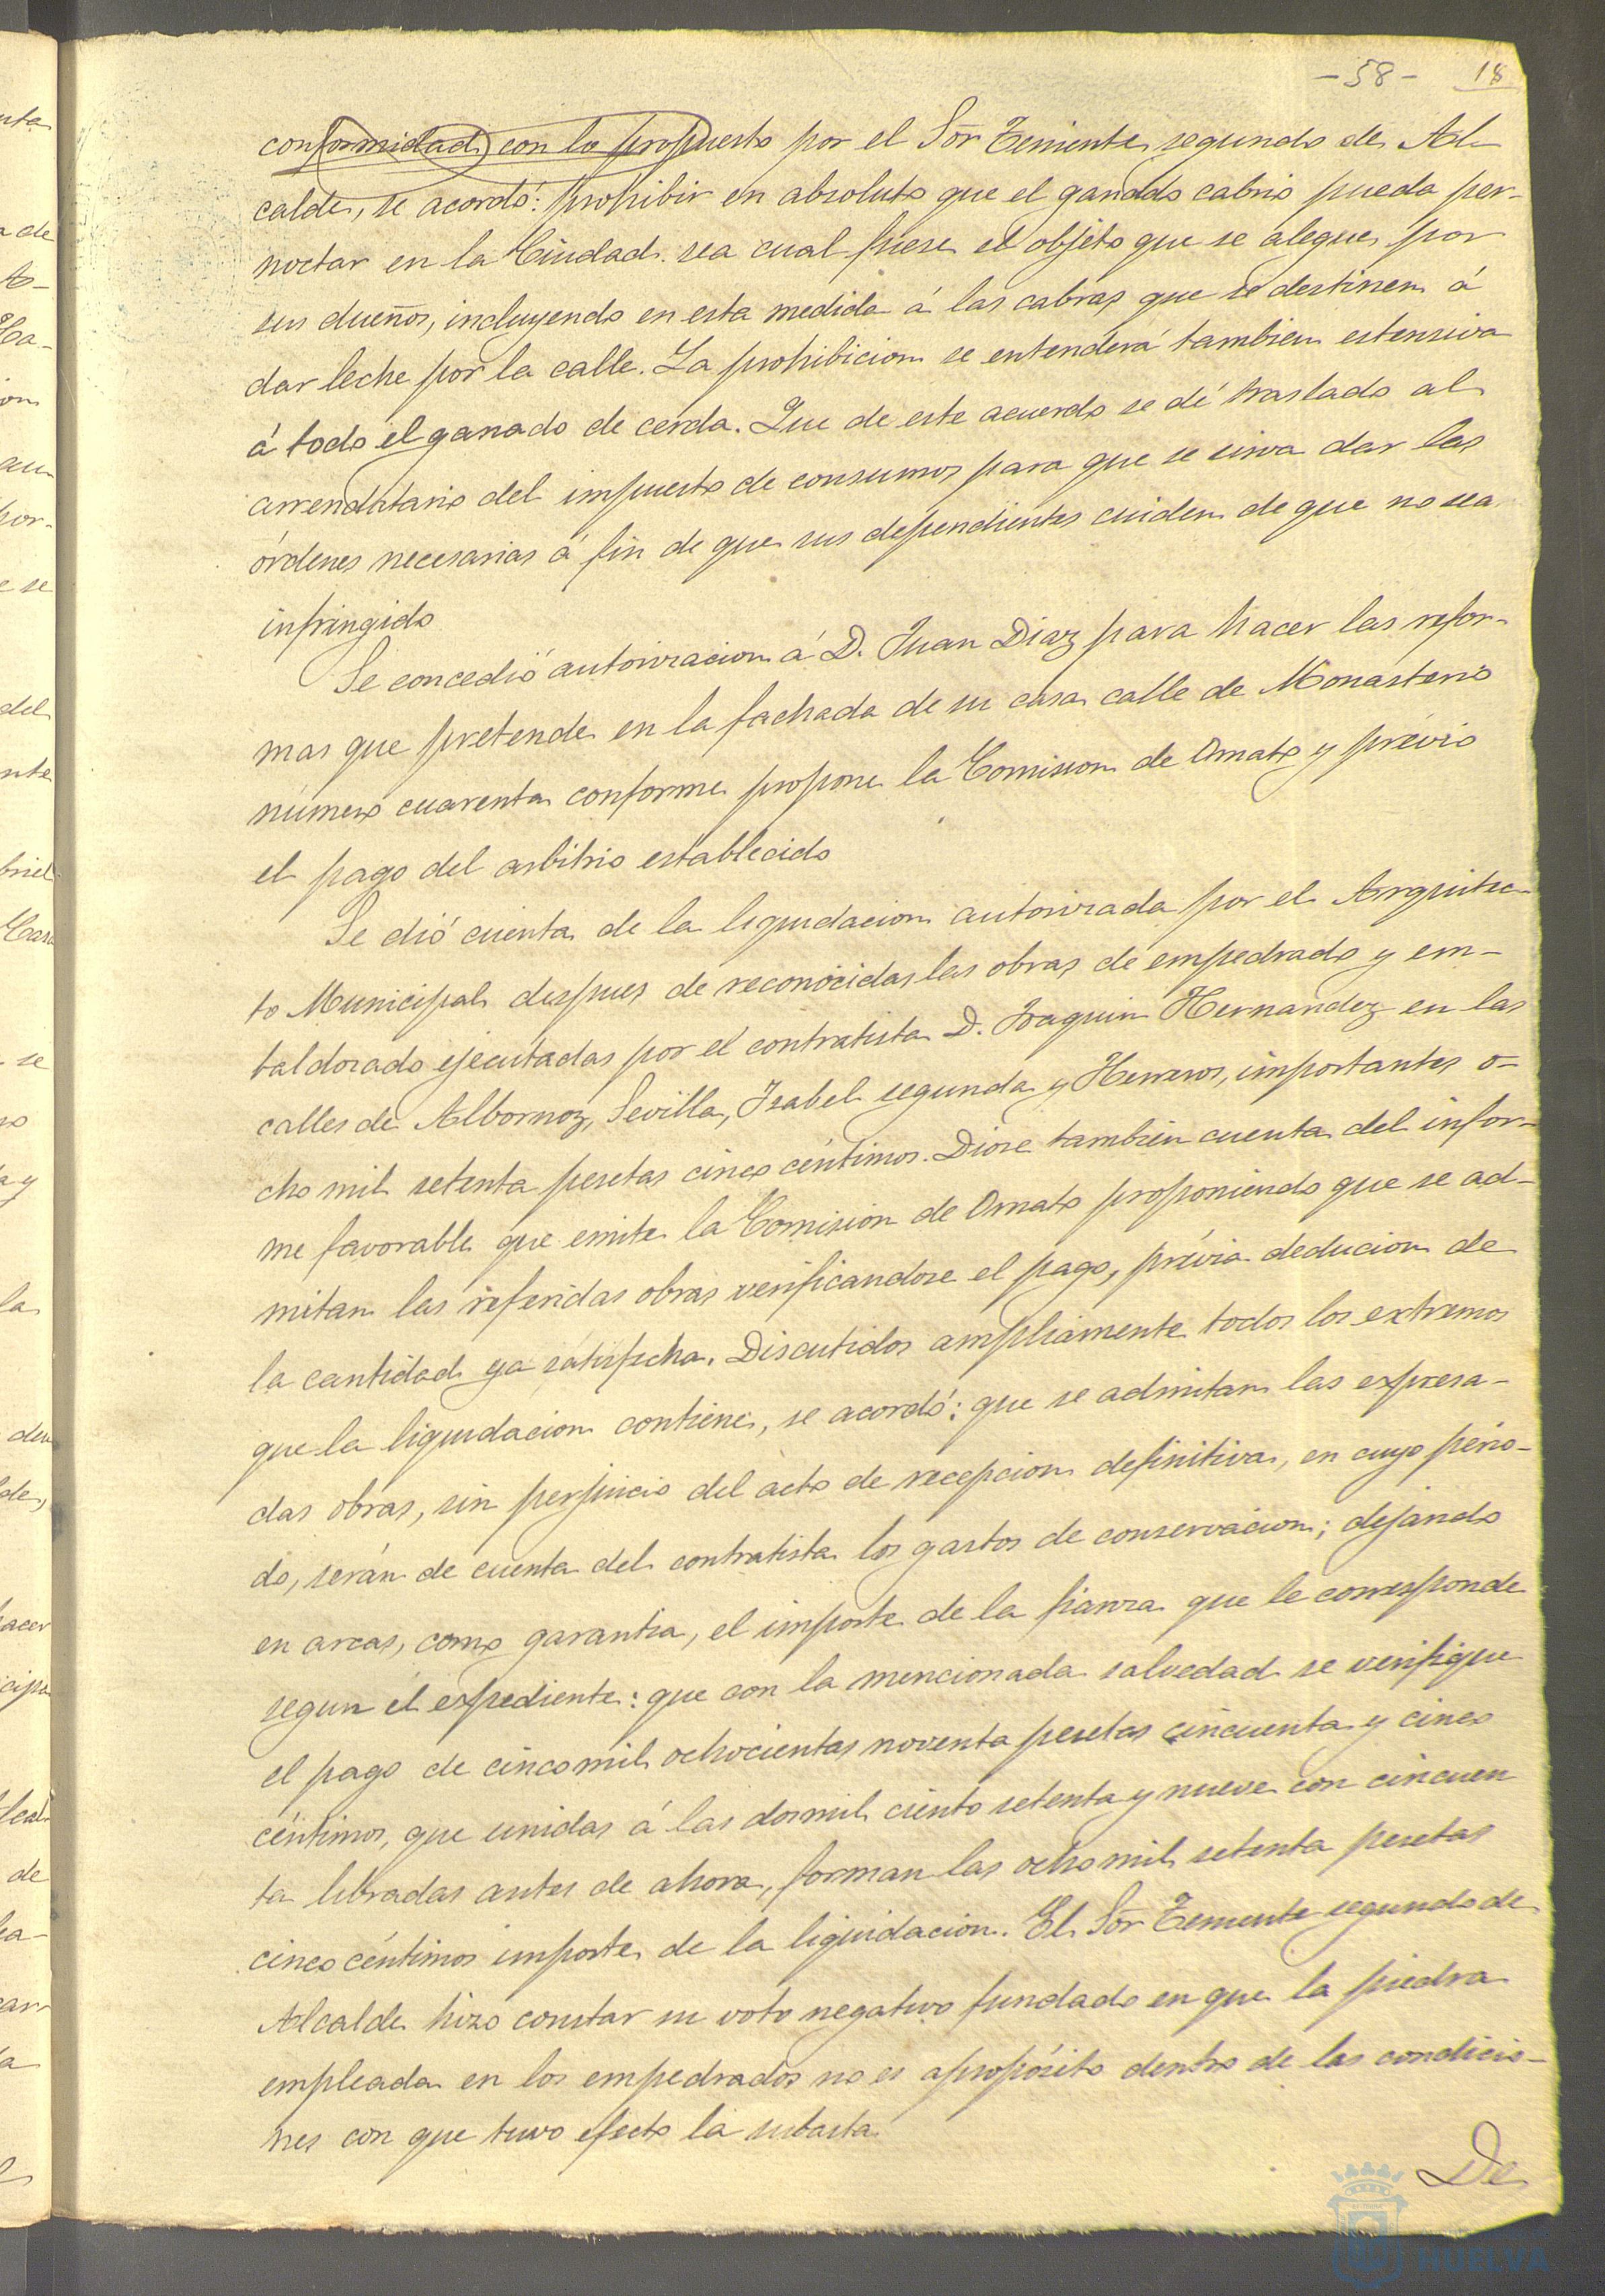 -58- 18
conformidad con lo propuesto por el Sor Teniente segundo de Al-
calde, se acordó: prohibir en absoluto que el ganado cabrio pueda per-
noctar en la Ciudad. sea cual fuese el objeto que se alegue por
sus dueños, incluyendo en esta medida á las cabras que se destinen á
dar leche por la calle. La prohibicion se entenderá tambien estensiva
á todo el ganado de cerda. Que de este acuerdo se dé traslado al
arrendatario del impuesto de consumos para que se sirva dar las
órdenes necesarias á fin de que sus dependientes cuiden de que no sea
infringido
Se concedió autorizacion á D. Juan Diaz para hacer las refor-
mas que pretende en la fachada de su casa calle de Monasterio
número cuarenta conforme propone la Comision de Ornato y prévio
el pago del arbitrio establecido
Se dió cuenta de la liquidacion autorizada por el Arquitec-
to Municipal despues de reconocidas las obras de empedrado y em-
baldosado ejecutadas por el contratista D. Joaquin Hernandez en las
calles de Albornoz, Sevilla, Isabel segunda y Herreros, importantes o-
cho mil setenta pesetas cinco céntimos. Diose tambien cuenta del infor-
me favorable que emite la Comision de Ornato proponiendo que se ad-
mitan las referidas obras verificandose el pago, prévia deducion de
la cantidad ya satisfecha. Discutidos ampliamente todos los extremos
que la liquidacion contiene, se acordó: que se admitan las expresa-
das obras, sin perjuicio del acto de recepcion definitiva, en cuyo perio-
do, serán de cuenta del contratista los gastos de conservacion; dejando
en arcas, como garantia, el importe de la fianza que le corresponde
segun el espediente: que con la mencionada salvedad se verifique
el pago de cinco mil ochocientas noventa pesetas cincuenta y cinco
céntimos, que unidas á las dos mil ciento setenta y nueve con cincuen
ta libradas antes de ahora, forman las ocho mil setenta pesetas
cinco céntimos importe de la liquidacion. El Sor Teniente segundo de
Alcalde hizo constar su voto negativo fundado en que la piedra
empleada en los empedrados no es apropósito dentro de las condicio-
nes con que tuvo efecto la subasta
De
HUELVA